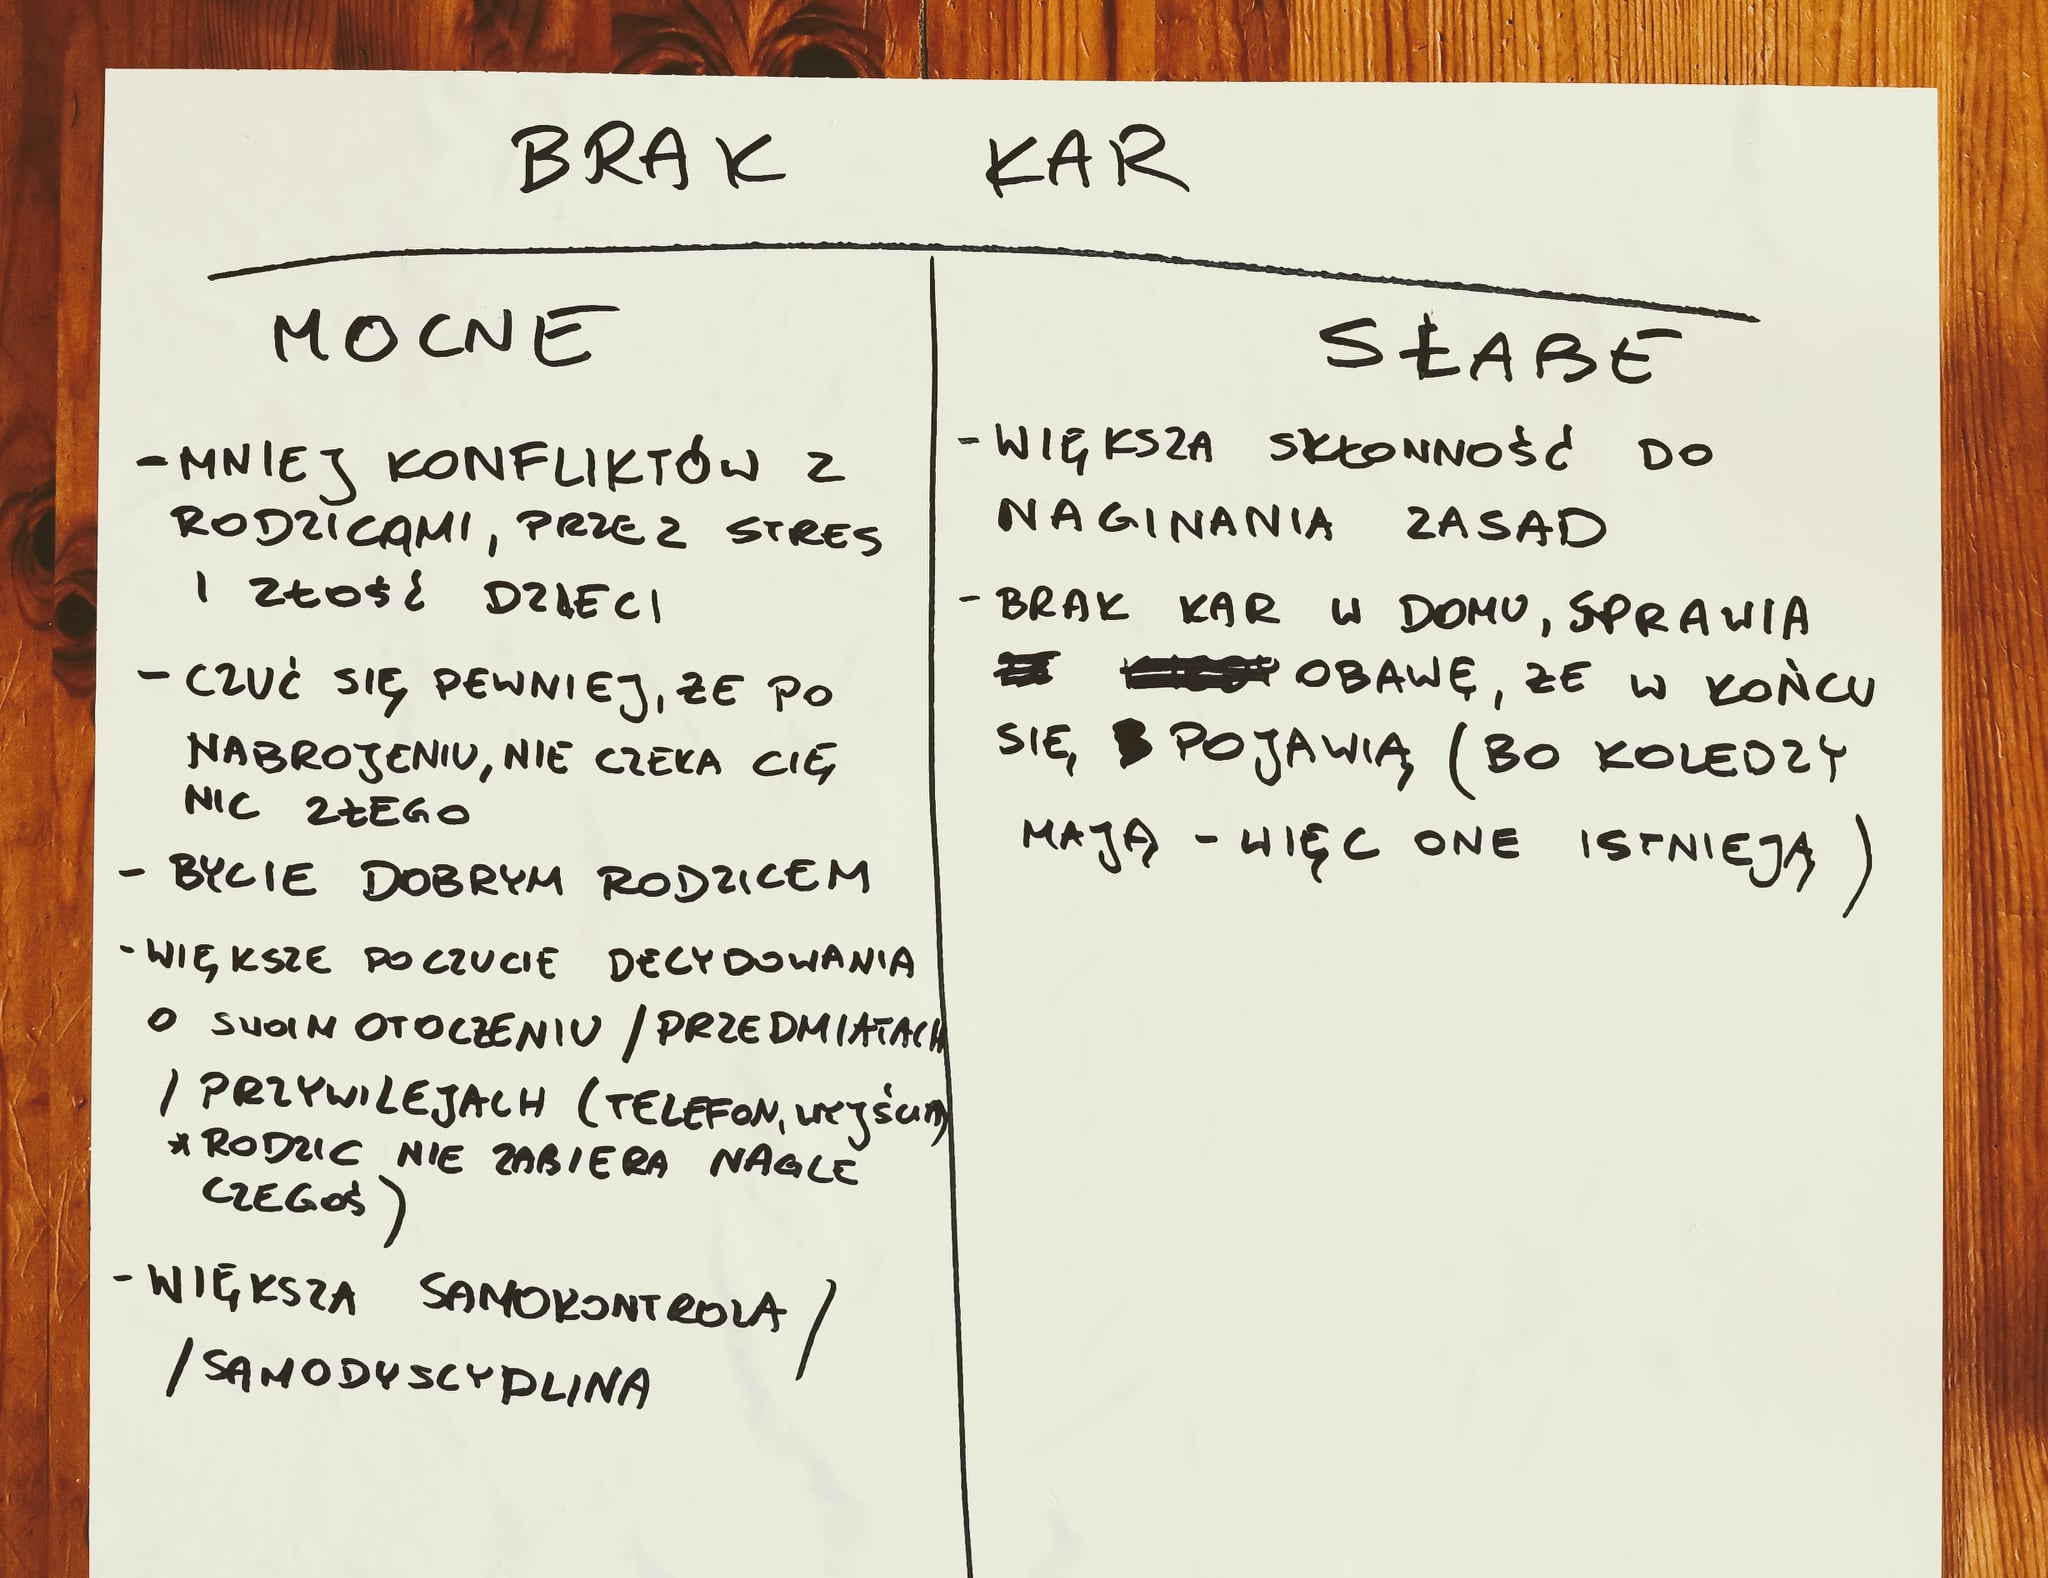 BRAK KAR
MOCNE
- MNIEJ KONFLIKTÓW Z
RODZICAMI, PRZEZ STRES
I ZŁOŚĆ DZIECI
- CZUĆ SIĘ PEWNIEJ, ŻE PO
NABROJENIU, NIE CZEKA CIĘ
NIC ZŁEGO
- BYCIE DOBRYM RODZICEM
- WIĘKSZE POCZUCIE DECYDOWANIA
O SWOIM OTOCZENIU / PRZEDMIATACH
/ PRZYWILEJACH (TELEFON, WYJŚCIA)
* RODZIC NIE ZABIERA NAGLE
CZEGOŚ)
- WIĘKSZA SAMOKONTROLA /
/ SAMODYSCYPLINA
SŁABE
- WIĘKSZA SKŁONNOŚĆ DO
NAGINANIA ZASAD
- BRAK KAR W DOMU, SPRAWIA
OBAWĘ, ŻE W KOŃCU
SIĘ POJAWIĄ (BO KOLEDZY
MAJĄ - WIĘC ONE ISTNIEJĄ)